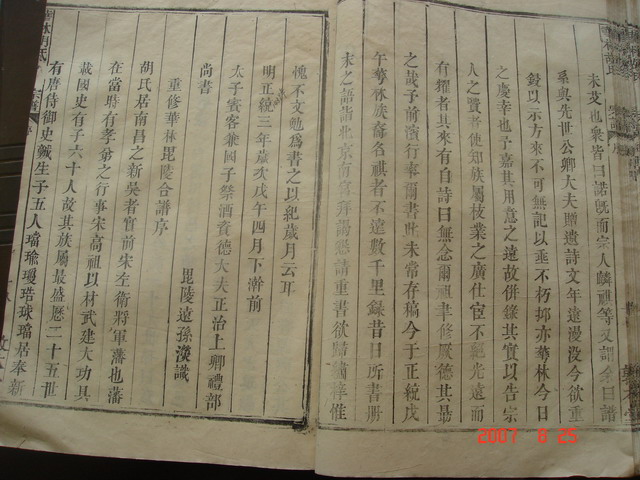 未艾也衆皆曰諾既而宗人麟祺等又謂余曰譜
系與先世公卿大夫贈遺詩文年遠漫沒今欲重
鋟以示方來不可無記以垂不朽邪亦華林今日
之慶幸也予嘉其用意之遠故併錄其實以告宗
人之賢者使知族屬枝業之廣仕宦不絕光遠而
有耀者其來有自詩曰無念爾祖聿修厥德其是
之哉予前濱行事爾書此未常存稿今于正統戊
午華林族裔名祺者不遠數千里錄昔日所書册
末之語詣北京南宮拜爾懇請重書欲歸繡梓惟
愧不文勉爲書之以紀歲月云耳
明正統三年歲次戊午四月下澣前
太子賓客兼國子祭酒資德大夫正治上卿禮部
尚書
毘陵遠孫濙識
重修華林毘陵合譜序
胡氏居南昌之新吳者實前宋左衛將軍藩也藩
在當時有孝弟之行事宋高祖以材武建大功具
載國史有子六十人故其族屬最盛歷二十五世
有唐侍御史㺹生子五人璫瑜瓊琣球璫居奉新
宗譜
序
2007 8 25